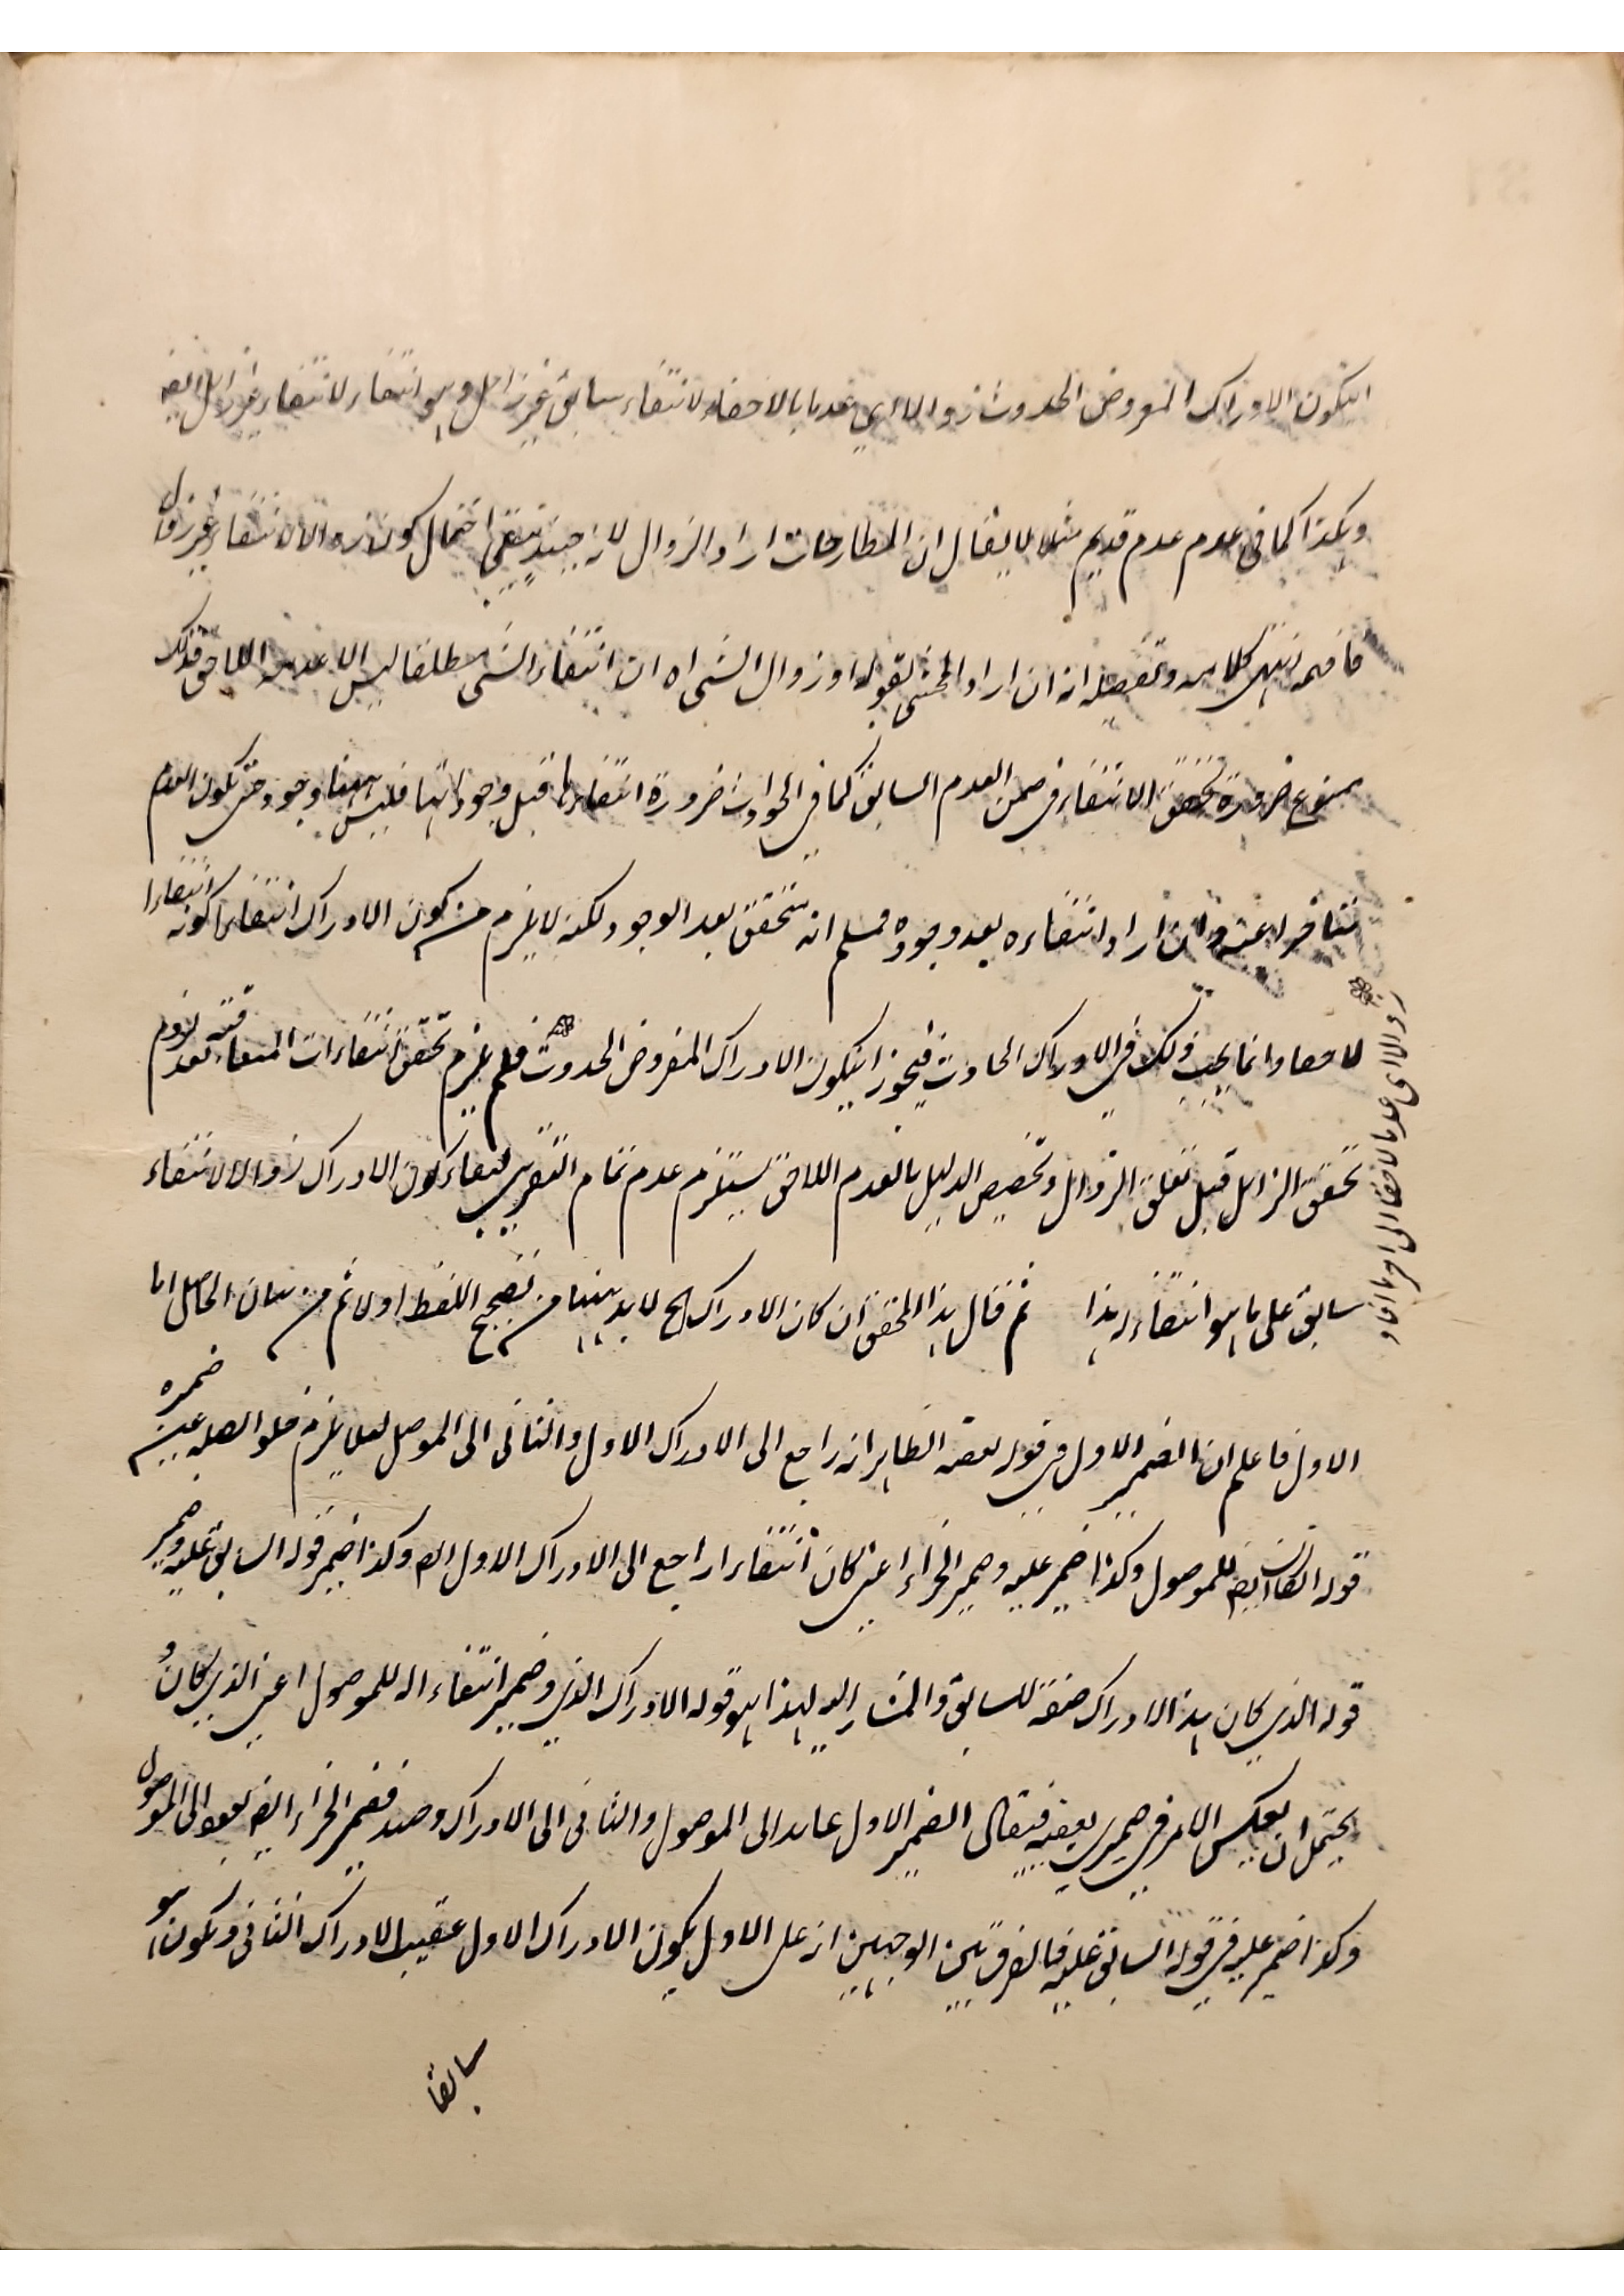 ان يكون الادراك المفروض الحدوث زوالا اي عدما بالاخفاء لانتفاء سابق غير زائل وهو انتفاء لانتفاء غير زائل ايضه
وهكذا كما في عدم عدم قديم مثلا لا يقال ان المطارحات اراد الزوال لانه حينئذ يبقى احتمال كونه زوالا لانتفاء غير زوال
فافهم انتهى كلامه وتفصيله انه ان اراد المحشي بقوله اذ زوال الشى اه ان انتفاء الشى مطلقا ليس الا عدمه اللاحق فذلك
ممنوع ضرورة تحقق الانتفاء في ضمن العدم السابق كما في الحوادث ضرورة انتفائها قبل وجوداتها فليس ههنا وجود حتى يكون العدم
متاخرا عنه وان اراد انتفاءه بعد وجوده فمسلم انه يتحقق بعد الوجود لكنه لا يلزم من كون الادراك انتفاء كونه انتفاءا
لاحقا وانما يجب ذلك في الادراك الحادث فيجوز ان يكون الادراك المفروض الحدوث فلم يلزم تحقق انتفاءات المتعاقبة لعدم لزوم
زوالا اى عدما لاحقا الى اخر ما افاد
تحقق الزائل قبل تعلق الزوال وتخصيص الدليل بالعدم اللاحق يستلزم عدم تمام التقريب لبقاء كون الادراك زوالا لانتفاء
سابق على ما هو انتفاء له هذا ثم قال هذا المحقق ان كان الادراك الخ لا بد ههنا من تصحيح اللفظ اولا ثم من بيان الحاصل اما
الاول فاعلم ان الضمير الاول في قوله بعقبه الظاهر انه راجع الى الادراك الاول والثاني الى الموصول لئلا يلزم خلو الصلة عن ضميره
قوله الكائن ايضه للموصول وكذا ضمير عليه وضمير الجزاء اعني كان انتفاء راجع الى الادراك الاول وكذا ضمير قوله السابق عليه وضمير
قوله الذي كان هذا الادراك صفة للسابق والمشار اليه لهذا هو قوله الادراك الذي وضمير انتفاء له للموصول اعني الذي كان و
يحتمل ان يعكس الامر في ضميري بعقبه فيقال الضمير الاول عائد الى الموصول والثاني الى الادراك وحينئذ فضمير الجزاء ايضه يعود الى الموصول
وكذا ضمير عليه في قوله السابق عليه فالفرق بين الوجهين انه على الاول يكون الادراك الاول عقيب الادراك الثاني ويكون هو
سابقا